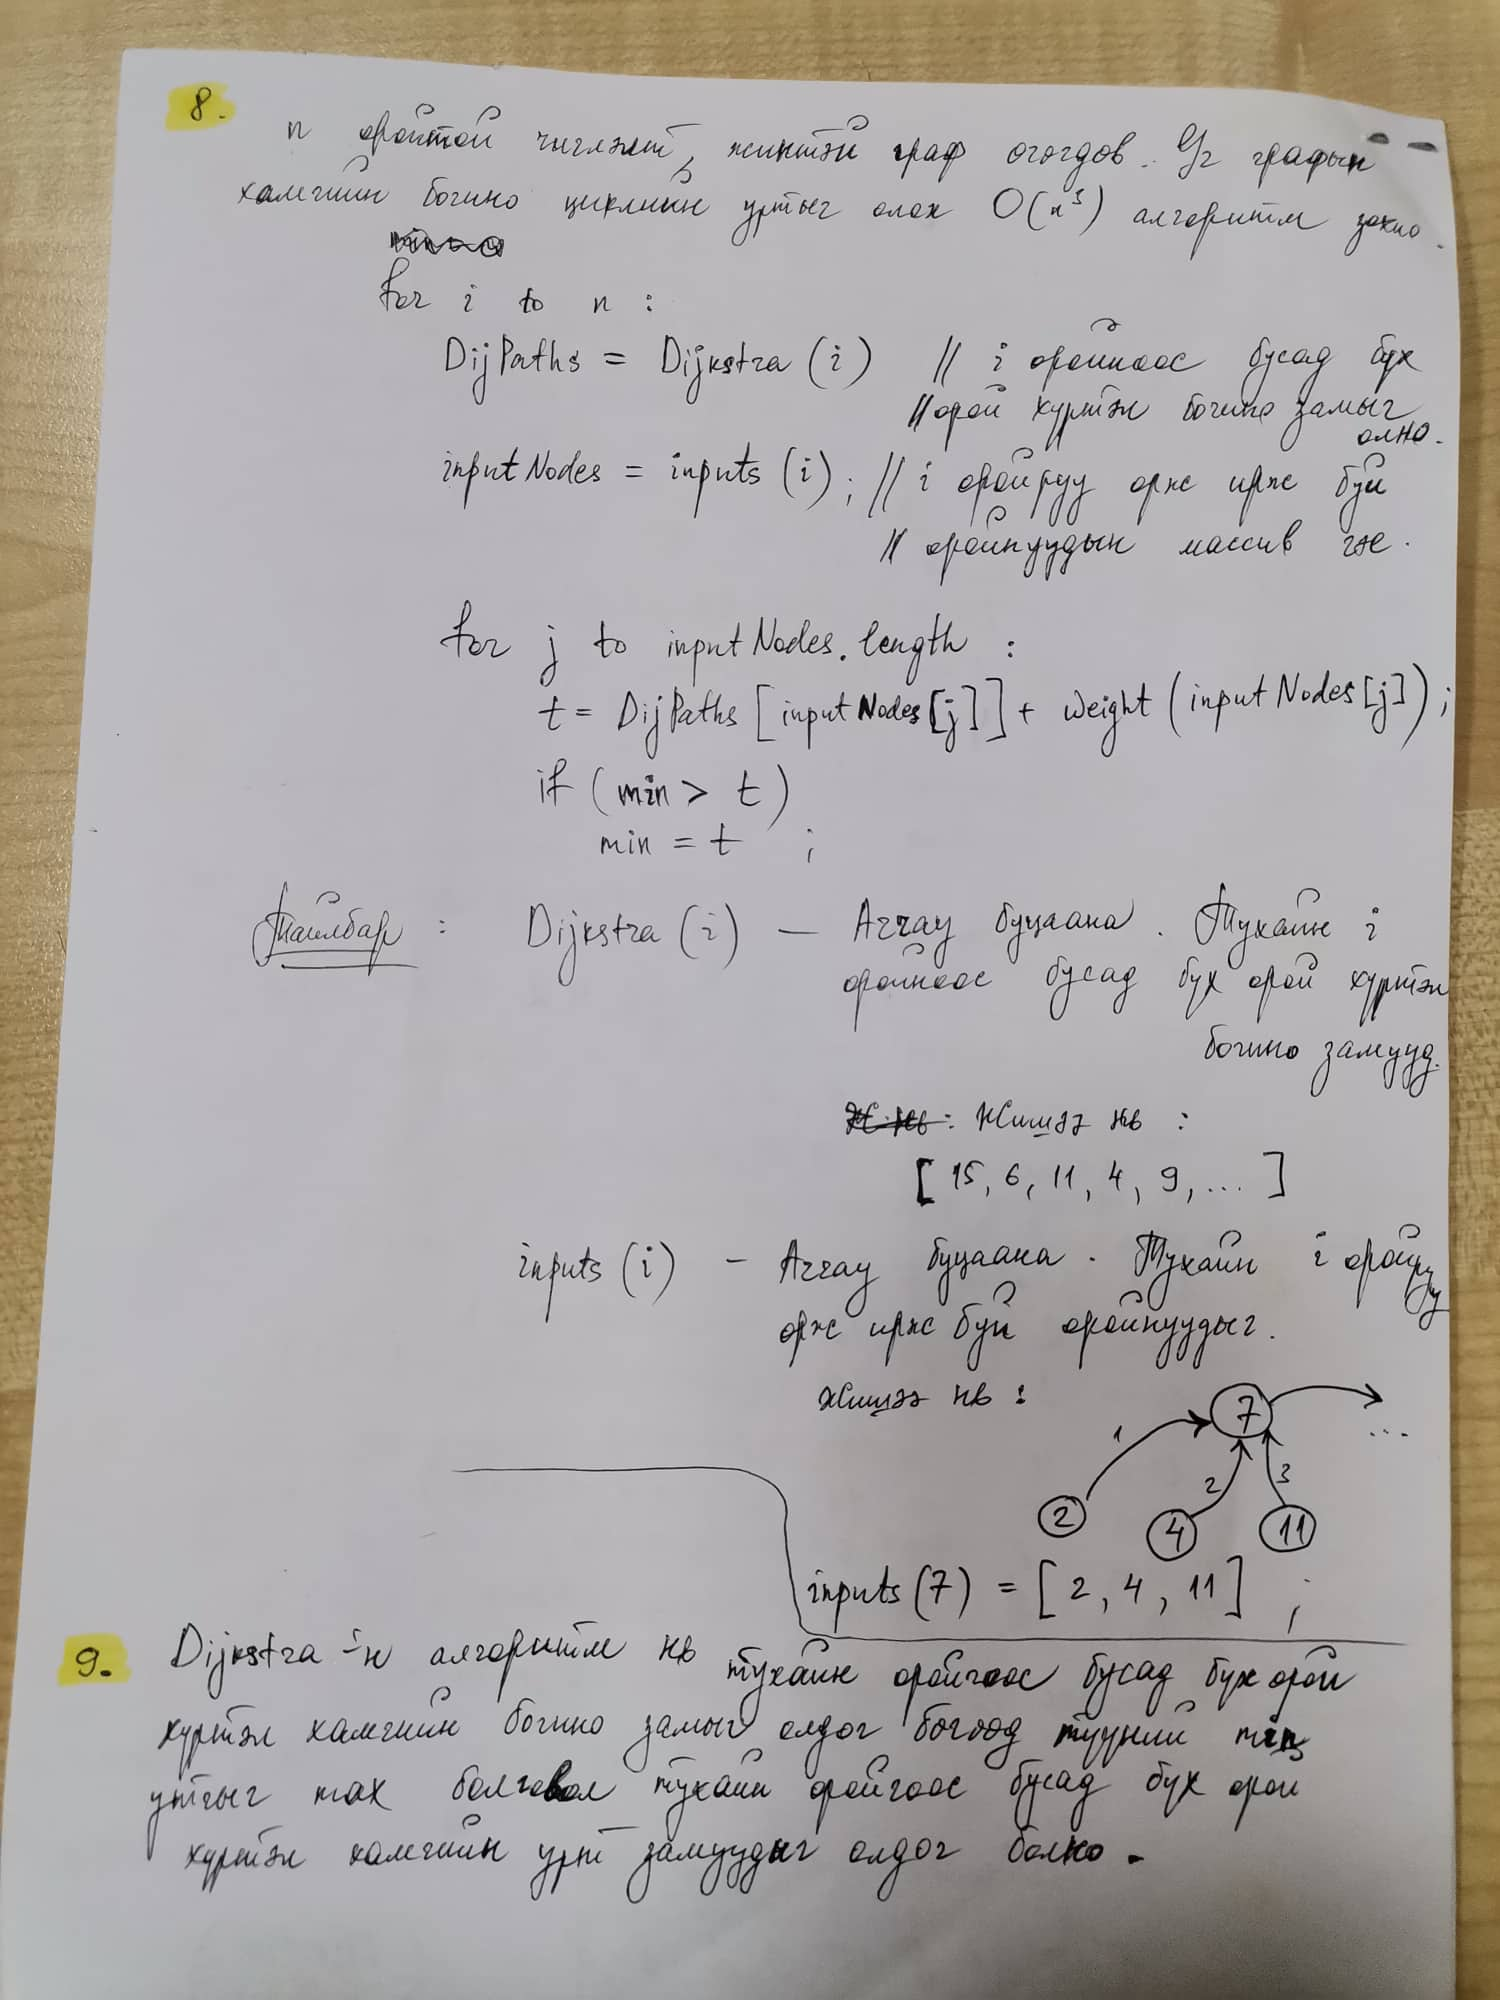 8.
n оройтой чиглэлт, жинтэй граф өгөгдөв. Уг графын
хамгийн богино циклийн уртыг олох O(n³) алгоритм зохио.
for i to n :
DijPaths = Dijkstra (i) // i оройноос бусад бүх
// орой хүртэл богино замыг
олно.
inputNodes = inputs (i) ; // i оройруу орж ирж буй
// оройнуудын массив гэж.
for j to inputNodes.length :
t = DijPaths [inputNodes[j]] + weight (inputNodes[j]) ;
if (min > t)
min = t ;
Тайлбар : Dijkstra (i) — Array буцаана. Тухайн i
оройноос бусад бүх орой хүртэл
богино замууд.
Жишээ нь :
[ 15, 6, 11, 4, 9, ... ]
inputs (i) — Array буцаана. Тухайн i оройруу
орж ирж буй оройнуудыг.
Жишээ нь :
7
...
1
2
3
2
4
11
inputs (7) = [2, 4, 11] ;
9. Dijkstra-н алгоритм нь тухайн оройгоос бусад бүх орой
хүртэл хамгийн богино замыг олдог бөгөөд түүний min
утгыг max болговол тухайн оройгоос бусад бүх орой
хүртэл хамгийн урт замуудыг олдог болно.